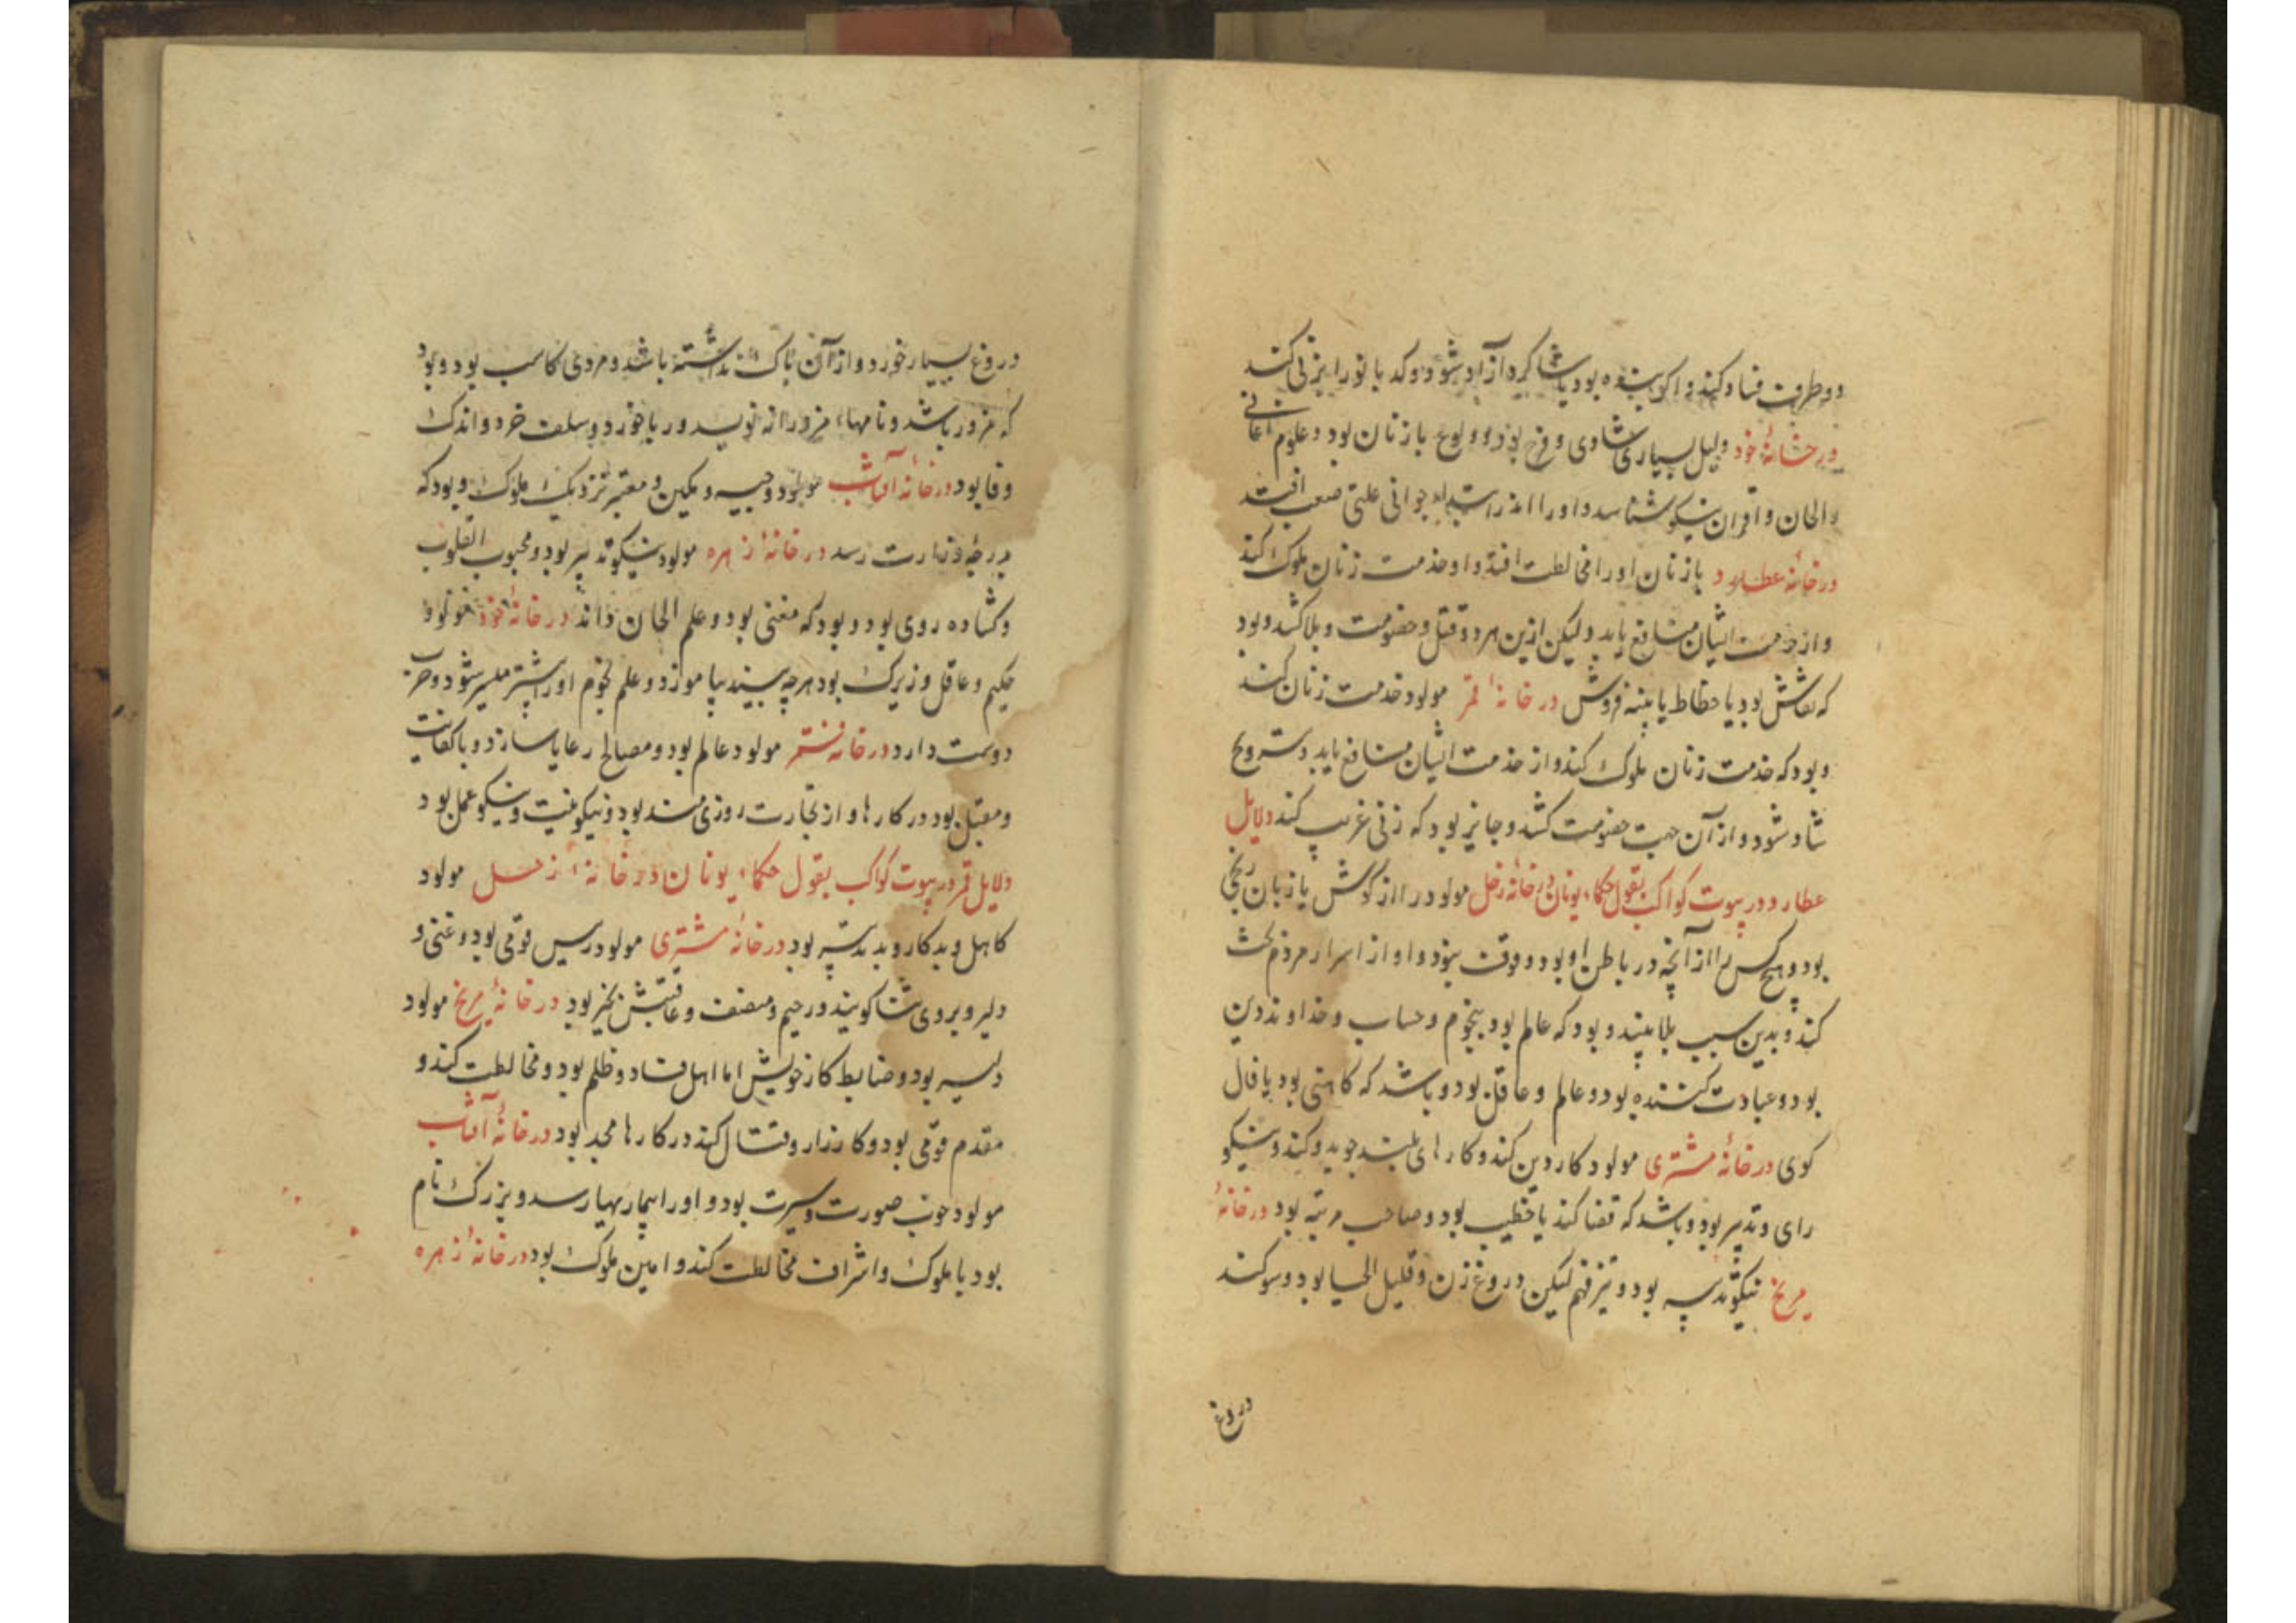 دو طرفت فساد کند و اگر بنده بود یا شاگرد آزاد شود و کدبانو را بزنی کند
در خانهٔ خود دلیل بسیاری شادی و فرح بود و ولوع با زنان بود و علوم اغانی
والحان و اقران نیکو شناسد و او را اندر ابتداء جوانی علتی صعب افتد
در خانهٔ عطارد با زنان او را مخالطت افتد و او خدمت زنان ملوک کند
و از خدمت ایشان منافع یابد و لیکن ازین هر دو قتل و خصومت و بلا کشد و بود
که نقاش بود یا خطاط یا پنبه فروش در خانهٔ قمر مولود خدمت زنان کند
و بود که خدمت زنان ملوک کند و از خدمت ایشان منافع یابد و بتزویج
شاد شود و از آن جهت خصومت کشد و جایز بود که زنی غریب کند دلایل
عطارد در بیوت کواکب بقول حکماء یونان در خانهٔ زحل مولود را از گوش یا زبان رنجی
بود و هیچ کس را از آنچه در باطن او بود وقوف نبود و او از اسرار مردم بحث
کند و بدین سبب بلا بیند و بود که عالم بود بنجوم و حساب و خداوند دین
بود و عبادت کننده بود و عالم و عاقل بود و باشد که کاهنی بود یا فال
کوی در خانهٔ مشتری مولود کار دین کند و کارهای بلند جوید و کند و نیکو
رای و تدبیر بود و باشد که قضا کند یا خطیب بود و صاحب مرتبه بود در خانهٔ
مریخ نیکو تدبیر بود و تیز فهم لیکن دروغ زن و قلیل الحیا بود و سوکند
دروغ
دروغ بسیار خورد و از آن باک نداشته باشد و مردی کاسب بود و بود
که مزور باشد و نامهاء مزورانه نویسد و ربا خورد و سلعت خرد و اندک
وفا بود در خانهٔ آفتاب مولود وجیه و مکین و معتبر نزدیک ملوک و بود که
بدرجهٔ وزارت رسد در خانهٔ زهره مولود نیکو تدبیر بود و محبوب القلوب
و کشاده روی بود و بود که مغنی بود و علم الحان داند در خانهٔ خود مولود
حکیم و عاقل و زیرک بود هرچه ببیند بیاموزد و علم نجوم او را بیشتر میسر شود و حرب
دوست دارد در خانهٔ قمر مولود عالم بود و مصالح رعایا سازد و با کفایت
و مقبل بود در کارها و از تجارت روزی مند بود و نیکونیت و نیکو عمل بود
دلایل قمر در بیوت کواکب بقول حکماء یونان در خانهٔ زحل مولود
کاهل و بدکار و بد تدبیر بود در خانهٔ مشتری مولود رییس قومی بود و غنی و
دلیر و بروی ثنا کویند و رحیم و منصف و عاقبتش بخیر بود در خانهٔ مریخ مولود
دلیر بود و ضابط کار خویش اما اهل فساد و ظلم بود و مخالطت کند و
مقدم قومی بود و کارزار و قتال کند در کارها مجد بود در خانهٔ آفتاب
مولود خوب صورت و سیرت بود و او را بیماریها رسد و بزرک نام
بود با ملوک و اشراف مخالطت کند و امین ملوک بود در خانهٔ زهره